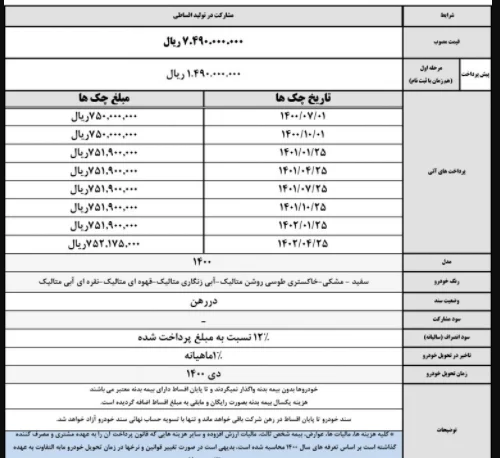 شرایط
مشارکت در تولید اقساطی
قیمت مصوب
۷،۴۹۰،۰۰۰،۰۰۰ ریال
پیش پرداخت
مرحله اول
(هم زمان با ثبت نام)
۱،۴۹۰،۰۰۰،۰۰۰ ریال
پرداخت های آتی
تاریخ چک ها
مبلغ چک ها
۱۴۰۰/۰۷/۰۱
۷۵۰،۰۰۰،۰۰۰ریال
۱۴۰۰/۱۰/۰۱
۷۵۰،۰۰۰،۰۰۰ریال
۱۴۰۱/۰۱/۲۵
۷۵۱،۹۰۰،۰۰۰ریال
۱۴۰۱/۰۴/۲۵
۷۵۱،۹۰۰،۰۰۰ریال
۱۴۰۱/۰۷/۲۵
۷۵۱،۹۰۰،۰۰۰ریال
۱۴۰۱/۱۰/۲۵
۷۵۱،۹۰۰،۰۰۰ریال
۱۴۰۲/۰۱/۲۵
۷۵۱،۹۰۰،۰۰۰ریال
۱۴۰۲/۰۴/۲۵
۷۵۲،۱۷۵،۰۰۰ریال
مدل
۱۴۰۰
رنگ خودرو
سفید - مشکی-خاکستری طوسی روشن متالیک-آبی زنگاری متالیک-قهوه ای متالیک-نقره ای آبی متالیک
وضعیت سند
دررهن
سود مشارکت
-
سود انصراف (سالیانه)
۱۲٪ نسبت به مبلغ پرداخت شده
تاخیر در تحویل خودرو
۱٪ماهیانه
زمان تحویل خودرو
دی ۱۴۰۰
توضیحات
خودروها بدون بیمه بدنه واگذار نمیگردند و تا پایان اقساط دارای بیمه بدنه معتبر می باشند
هزینه یکسال بیمه بدنه بصورت رایگان و مابقی به مبلغ اقساط اضافه گردیده است.
سند خودرو تا پایان اقساط در رهن شرکت باقی خواهد ماند و تنها با تسویه حساب نهائی سند خودرو آزاد خواهد شد.
*کلیه هزینه ها، مالیات ها، عوارض، بیمه شخص ثالث، مالیات ارزش افزوده و سایر هزینه هایی که قانون پرداخت آن را به عهده مشتری و مصرف کننده
گذاشته است بر اساس تعرفه های سال ۱۴۰۰ محاسبه شده است، بدیهی است در صورت تغییر قوانین و نرخها در زمان تحویل خودرو مابه التفاوت به عهده